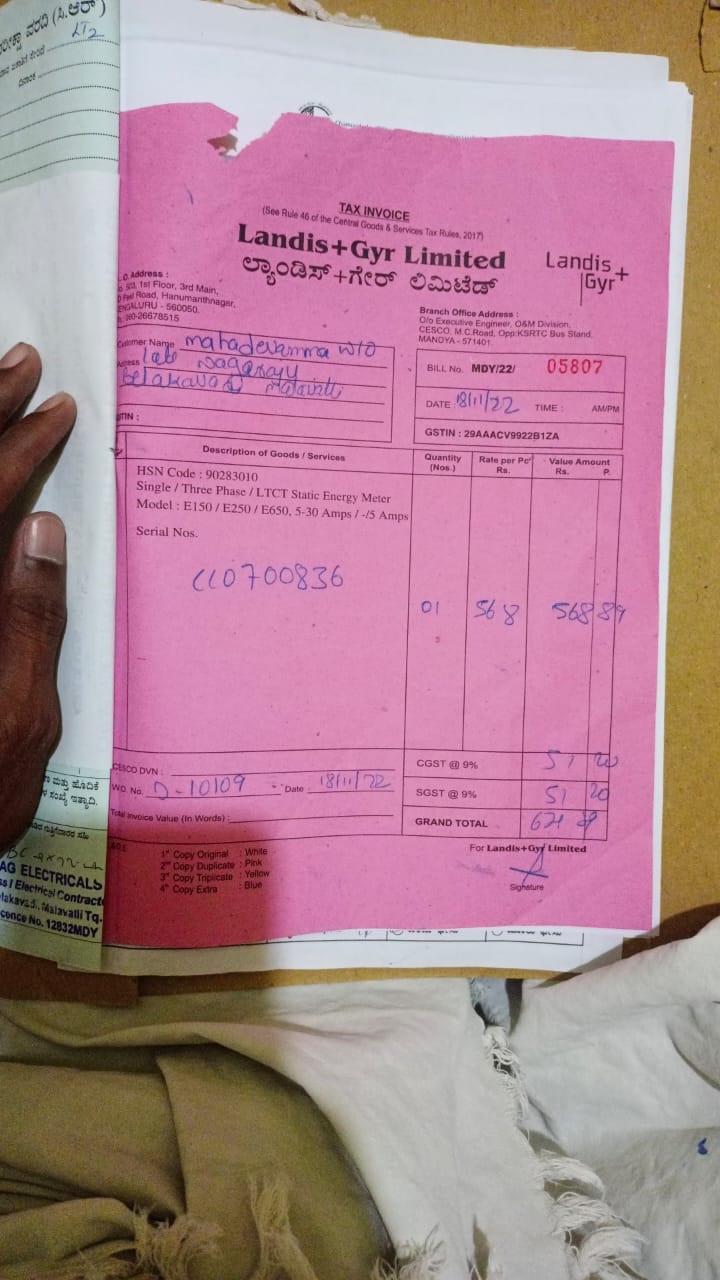 ಪರೀಕ್ಷಾ ವರದಿ (ಸಿ.ಆರ್)
LT2
ದಿನಾಂಕ
TAX INVOICE
(See Rule 46 of the Central Goods & Services Tax Rules, 2017)
Landis+Gyr Limited
ಲ್ಯಾಂಡಿಸ್+ಗೇರ್ ಲಿಮಿಟೆಡ್
Landis+
Gyr
Address :
1st Floor, 3rd Main,
Road, Hanumanthnagar,
- 560050.
080-26678515
Branch Office Address :
O/o Executive Engineer, O&M Division,
CESCO, M.C.Road, Opp:KSRTC Bus Stand,
MANDYA - 571401.
Customer Name mahadevamma W/O
Address late Nagaraju
Belakavadi malavalli
GSTIN :
BILL No. MDY/22/ 05807
DATE : 18/11/22 TIME : AM/PM
GSTIN : 29AAACV9922B1ZA
Description of Goods / Services
Quantity (Nos.)
Rate per Pc' Rs.
Value Amount Rs. P.
HSN Code : 90283010
Single / Three Phase / LTCT Static Energy Meter
Model : E150 / E250 / E650, 5-30 Amps / -/5 Amps
Serial Nos.
CC0700836
01 568 568 89
CESCO DVN :
CGST @ 9% 51 20
W.O. No. D-10109 Date 18/11/22
SGST @ 9% 51 20
Total Invoice Value (In Words) :
GRAND TOTAL
1st Copy Original : White
2nd Copy Duplicate : Pink
3rd Copy Triplicate : Yellow
4th Copy Extra : Blue
For Landis+Gyr Limited
Signature
ಮತ್ತು ಹೊದಿಕೆ
ಸಂಖ್ಯೆ ಇತ್ಯಾದಿ.
AG ELECTRICALS
ss / Electrical Contracto
lakavadi, Malavalli Tq.
cence No. 12832MDY